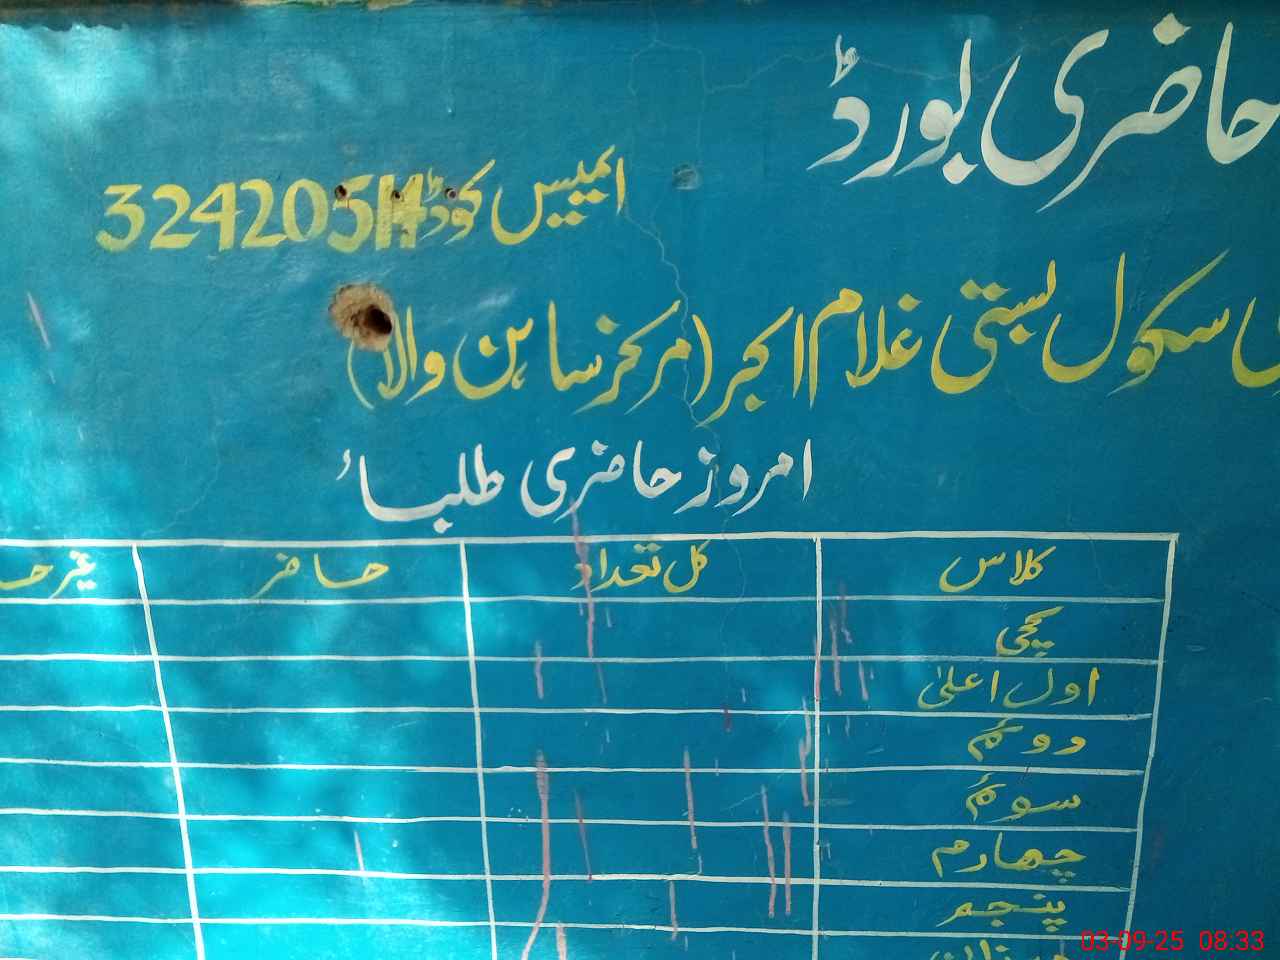 حاضری بورڈ
ایمیس کوڈ 32420514
سکول بستی غلام اکبر (مرکز ساہن والا)
امروز حاضری طلباء
کلاس کل تعداد حاضر غیر حـ
کچی
اول اعلیٰ
دوئم
سوئم
چہارم
پنجم
03-09-25 08:33